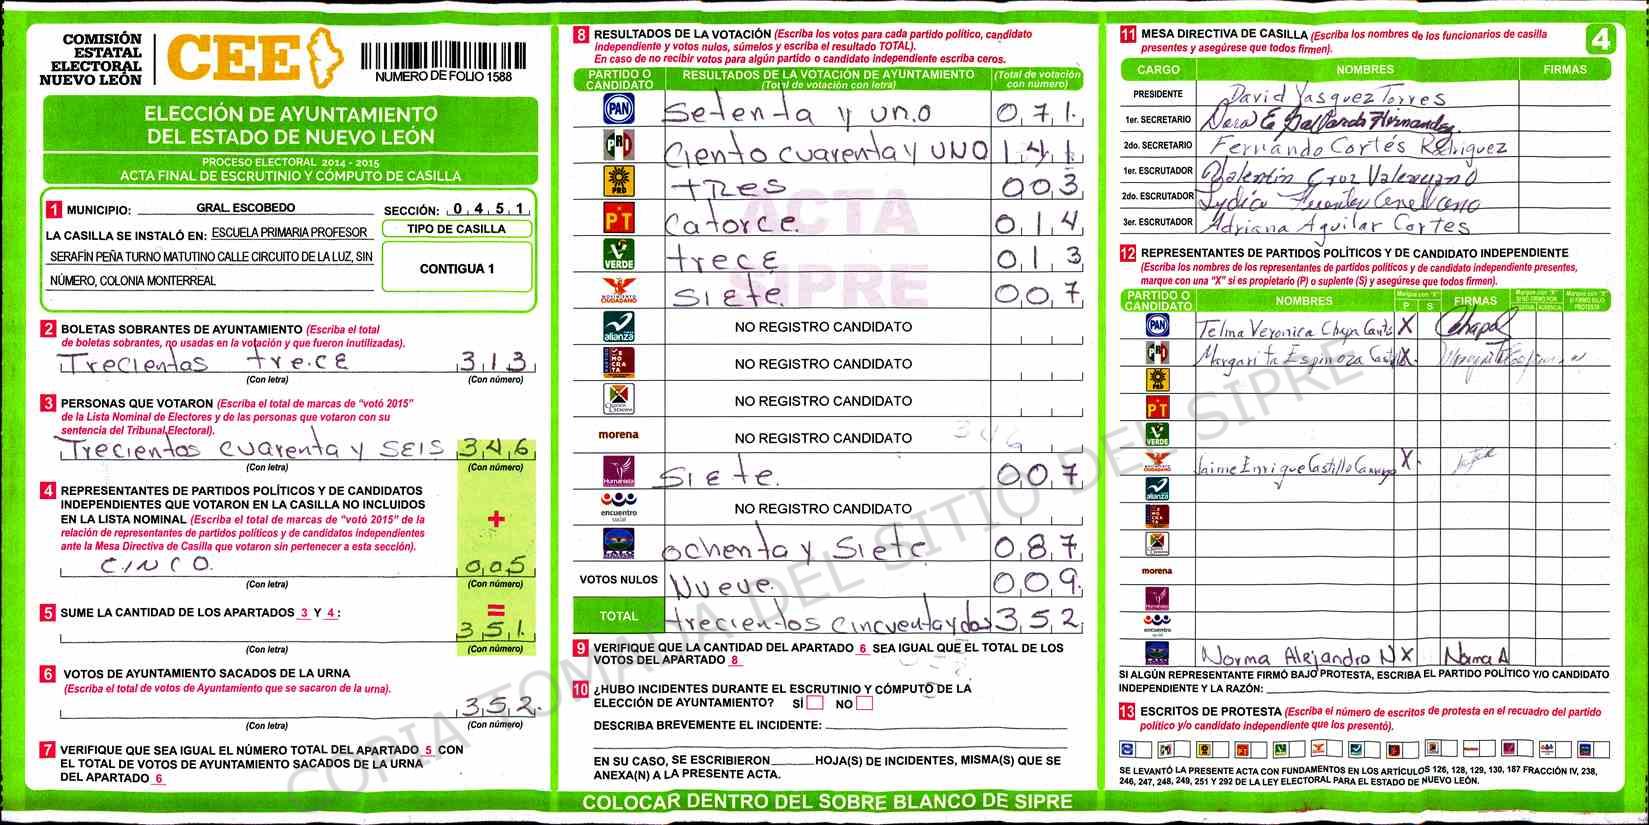 COMISIÓN
ESTATAL
ELECTORAL
NUEVO LEÓN
CEE
NUMERO DE FOLIO 1588
ELECCIÓN DE AYUNTAMIENTO
DEL ESTADO DE NUEVO LEÓN
PROCESO ELECTORAL 2014 - 2015
ACTA FINAL DE ESCRUTINIO Y CÓMPUTO DE CASILLA
1 MUNICIPIO: GRAL. ESCOBEDO SECCIÓN: 0 4 5 1
LA CASILLA SE INSTALÓ EN: ESCUELA PRIMARIA PROFESOR
SERAFÍN PEÑA TURNO MATUTINO CALLE CIRCUITO DE LA LUZ, SIN
NÚMERO, COLONIA MONTERREAL
TIPO DE CASILLA
CONTIGUA 1
2 BOLETAS SOBRANTES DE AYUNTAMIENTO (Escriba el total
de boletas sobrantes, no usadas en la votación y que fueron inutilizadas).
Trecientos trece 3 1 3
(Con letra) (Con número)
3 PERSONAS QUE VOTARON (Escriba el total de marcas de "votó 2015"
de la Lista Nominal de Electores y de las personas que votaron con su
sentencia del Tribunal Electoral).
Trecientos cuarenta y SEIS 3 4 6
(Con letra) (Con número)
4 REPRESENTANTES DE PARTIDOS POLÍTICOS Y DE CANDIDATOS
INDEPENDIENTES QUE VOTARON EN LA CASILLA NO INCLUIDOS
EN LA LISTA NOMINAL (Escriba el total de marcas de "votó 2015" de la
relación de representantes de partidos políticos y de candidatos independientes
ante la Mesa Directiva de Casilla que votaron sin pertenecer a esta sección).
+
CINCO. 0 0 5
(Con letra) (Con número)
=
5 SUME LA CANTIDAD DE LOS APARTADOS 3 Y 4:
3 5 1
(Con letra) (Con número)
6 VOTOS DE AYUNTAMIENTO SACADOS DE LA URNA
(Escriba el total de votos de Ayuntamiento que se sacaron de la urna).
3 5 2
(Con letra) (Con número)
7 VERIFIQUE QUE SEA IGUAL EL NÚMERO TOTAL DEL APARTADO 5 CON
EL TOTAL DE VOTOS DE AYUNTAMIENTO SACADOS DE LA URNA
DEL APARTADO 6
8 RESULTADOS DE LA VOTACIÓN (Escriba los votos para cada partido político, candidato
independiente y votos nulos, súmelos y escriba el resultado TOTAL).
En caso de no recibir votos para algún partido o candidato independiente escriba ceros.
PARTIDO O CANDIDATO
RESULTADOS DE LA VOTACIÓN DE AYUNTAMIENTO
(Total de votación con letra)
(Total de votación con número)
PAN Setenta y uno 0 7 1
PRI Ciento cuarenta y UNO 1 4 1
PRD tres 0 0 3
PT Catorce. 0 1 4
VERDE trece 0 1 3
MOVIMIENTO CIUDADANO siete. 0 0 7
alianza NO REGISTRO CANDIDATO
DEMOCRATA NO REGISTRO CANDIDATO
NO REGISTRO CANDIDATO
morena NO REGISTRO CANDIDATO 346
Humanista Siete. 0 0 7
encuentro social NO REGISTRO CANDIDATO
ochenta y Siete 0 8 7
VOTOS NULOS Nueve. 0 0 9
TOTAL trecientos cincuenta y dos 3 5 2
9 VERIFIQUE QUE LA CANTIDAD DEL APARTADO 6 SEA IGUAL QUE EL TOTAL DE LOS
VOTOS DEL APARTADO 8
10 ¿HUBO INCIDENTES DURANTE EL ESCRUTINIO Y CÓMPUTO DE LA
ELECCIÓN DE AYUNTAMIENTO? SÍ NO
DESCRIBA BREVEMENTE EL INCIDENTE:
EN SU CASO, SE ESCRIBIERON HOJA(S) DE INCIDENTES, MISMA(S) QUE SE
ANEXA(N) A LA PRESENTE ACTA.
COLOCAR DENTRO DEL SOBRE BLANCO DE SIPRE
ACTA
SIPRE
COPIA TOMADA DEL SITIO DEL SIPRE
11 MESA DIRECTIVA DE CASILLA (Escriba los nombres de los funcionarios de casilla
presentes y asegúrese que todos firmen).
4
CARGO NOMBRES FIRMAS
PRESIDENTE David Vasquez Torres
1er. SECRETARIO E Gallardo Hernandez
2do. SECRETARIO Fernando Cortés Rodriguez
1er. ESCRUTADOR Valentin Cruz Valeriano
2do. ESCRUTADOR Lydia
3er. ESCRUTADOR Adriana Aguilar Cortes
12 REPRESENTANTES DE PARTIDOS POLÍTICOS Y DE CANDIDATO INDEPENDIENTE
(Escriba los nombres de los representantes de partidos políticos y de candidato independiente presentes,
marque con una "X" si es propietario (P) o suplente (S) y asegúrese que todos firmen).
PARTIDO O CANDIDATO
NOMBRES
Marque con "X"
P S
FIRMAS
PAN Telma Veronica Chapa Cantu X Chapa
PRI Margarita Espinoza X
PRD
PT
VERDE
MOVIMIENTO CIUDADANO Jaime Enrique Castillo X
alianza
morena
Humanista
encuentro social
Norma Alejandro N X Norma A
SI ALGÚN REPRESENTANTE FIRMÓ BAJO PROTESTA, ESCRIBA EL PARTIDO POLÍTICO Y/O CANDIDATO
INDEPENDIENTE Y LA RAZÓN:
13 ESCRITOS DE PROTESTA (Escriba el número de escritos de protesta en el recuadro del partido
político y/o candidato independiente que los presentó).
SE LEVANTÓ LA PRESENTE ACTA CON FUNDAMENTOS EN LOS ARTÍCULOS 126, 128, 129, 130, 187 FRACCIÓN IV, 238,
246, 247, 248, 249, 251 Y 292 DE LA LEY ELECTORAL PARA EL ESTADO DE NUEVO LEÓN.